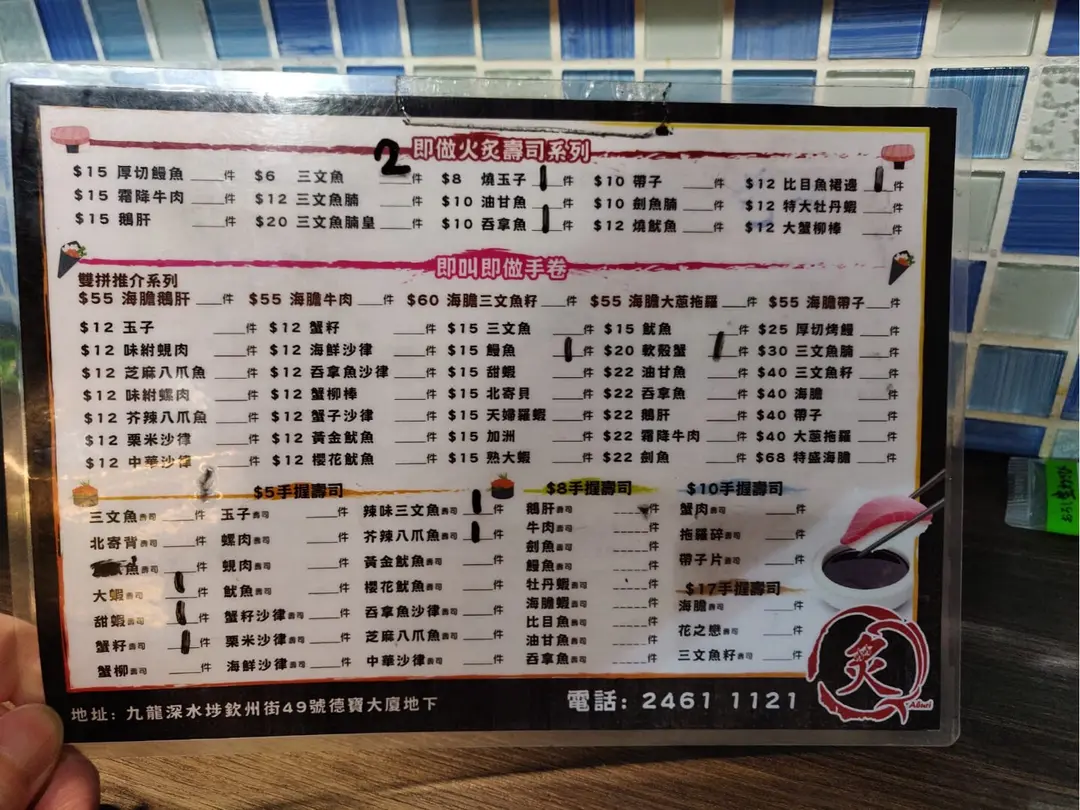 即做火炙壽司系列
$15 厚切鰻魚 ____件 $6 三文魚 2 件 $8 燒玉子 1 件 $10 帶子 ____件 $12 比目魚裙邊 1 件
$15 霜降牛肉 ____件 $12 三文魚腩 ____件 $10 油甘魚 ____件 $10 劍魚腩 ____件 $12 特大牡丹蝦 ____件
$15 鵝肝 ____件 $20 三文魚腩皇 ____件 $10 吞拿魚 1 件 $12 燒魷魚 ____件 $12 大蟹柳棒 ____件
即叫即做手卷
雙拼推介系列
$55 海膽鵝肝 ____件 $55 海膽牛肉 ____件 $60 海膽三文魚籽 ____件 $55 海膽大蔥拖羅 ____件 $55 海膽帶子 ____件
$12 玉子 ____件 $12 蟹籽 ____件 $15 三文魚 ____件 $15 魷魚 ____件 $25 厚切烤鰻 ____件
$12 味紨蜆肉 ____件 $12 海鮮沙律 ____件 $15 鰻魚 1 件 $20 軟殼蟹 1 件 $30 三文魚腩 ____件
$12 芝麻八爪魚 ____件 $12 吞拿魚沙律 ____件 $15 甜蝦 ____件 $22 油甘魚 ____件 $40 三文魚籽 ____件
$12 味紨螺肉 ____件 $12 蟹柳棒 ____件 $15 北寄貝 ____件 $22 吞拿魚 ____件 $40 海膽 ____件
$12 芥辣八爪魚 ____件 $12 蟹子沙律 ____件 $15 天婦羅蝦 ____件 $22 鵝肝 ____件 $40 帶子 ____件
$12 栗米沙律 ____件 $12 黃金魷魚 ____件 $15 加洲 ____件 $22 霜降牛肉 ____件 $40 大蔥拖羅 ____件
$12 中華沙律 ____件 $12 櫻花魷魚 ____件 $15 熟大蝦 ____件 $22 劍魚 ____件 $68 特盛海膽 ____件
$5手握壽司
三文魚壽司 ____件 玉子壽司 ____件 辣味三文魚壽司 1 件
北寄背壽司 ____件 螺肉壽司 ____件 芥辣八爪魚壽司 1 件
魚壽司 ____件 蜆肉壽司 ____件 黃金魷魚壽司 ____件
大蝦壽司 1 件 魷魚壽司 ____件 櫻花魷魚壽司 ____件
甜蝦壽司 1 件 蟹籽沙律壽司 ____件 吞拿魚沙律壽司 ____件
蟹籽壽司 1 件 栗米沙律壽司 ____件 芝麻八爪魚壽司 ____件
蟹柳壽司 ____件 海鮮沙律壽司 ____件 中華沙律壽司 ____件
$8手握壽司
鵝肝壽司 ____件
牛肉壽司 ____件
劍魚壽司 ____件
鰻魚壽司 ____件
牡丹蝦壽司 ____件
海膽蝦壽司 ____件
比目魚壽司 ____件
油甘魚壽司 ____件
吞拿魚壽司 ____件
$10手握壽司
蟹肉壽司 ____件
拖羅碎壽司 ____件
帶子片壽司 ____件
$17手握壽司
海膽壽司 ____件
花之戀壽司 ____件
三文魚籽壽司 ____件
炙
Aburi
地址: 九龍深水埗欽州街49號德寶大廈地下
電話: 2461 1121